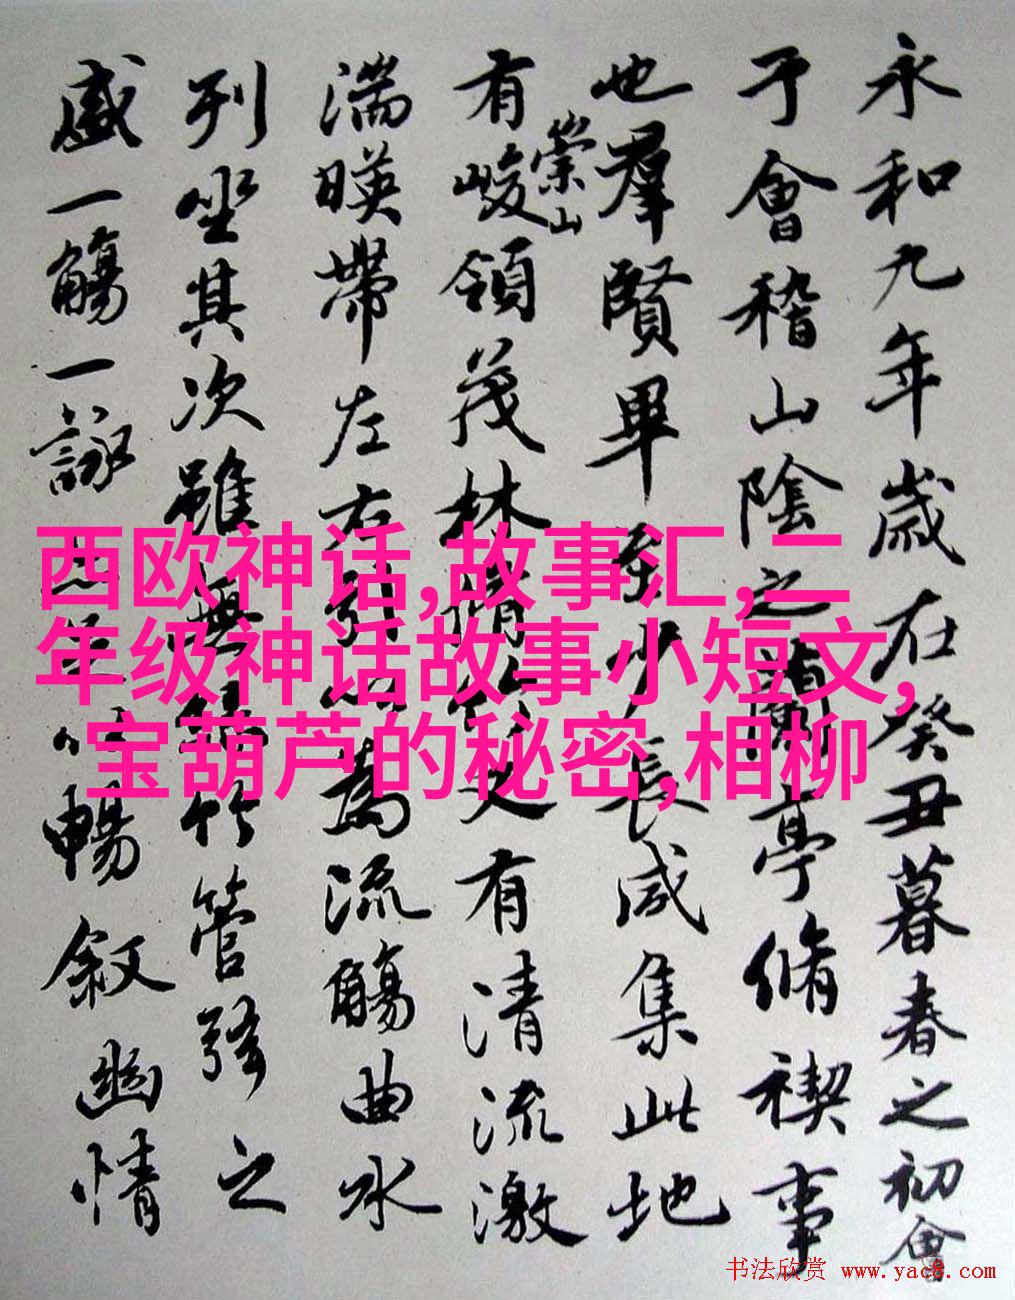 永和九年歲在癸丑暮春之初會
于會稽山陰之蘭亭脩禊事
也羣賢畢至少長咸集此地
有崇山峻領茂林脩竹又有清流激
湍暎帶左右引以為流觴曲水
列坐其次雖無絲竹管弦之
盛一觴一詠亦足以暢敘幽情
西欧神话,故事汇,二
年级神话故事小短文,
宝葫芦的秘密,相柳
书法欣赏 www.yac8.com